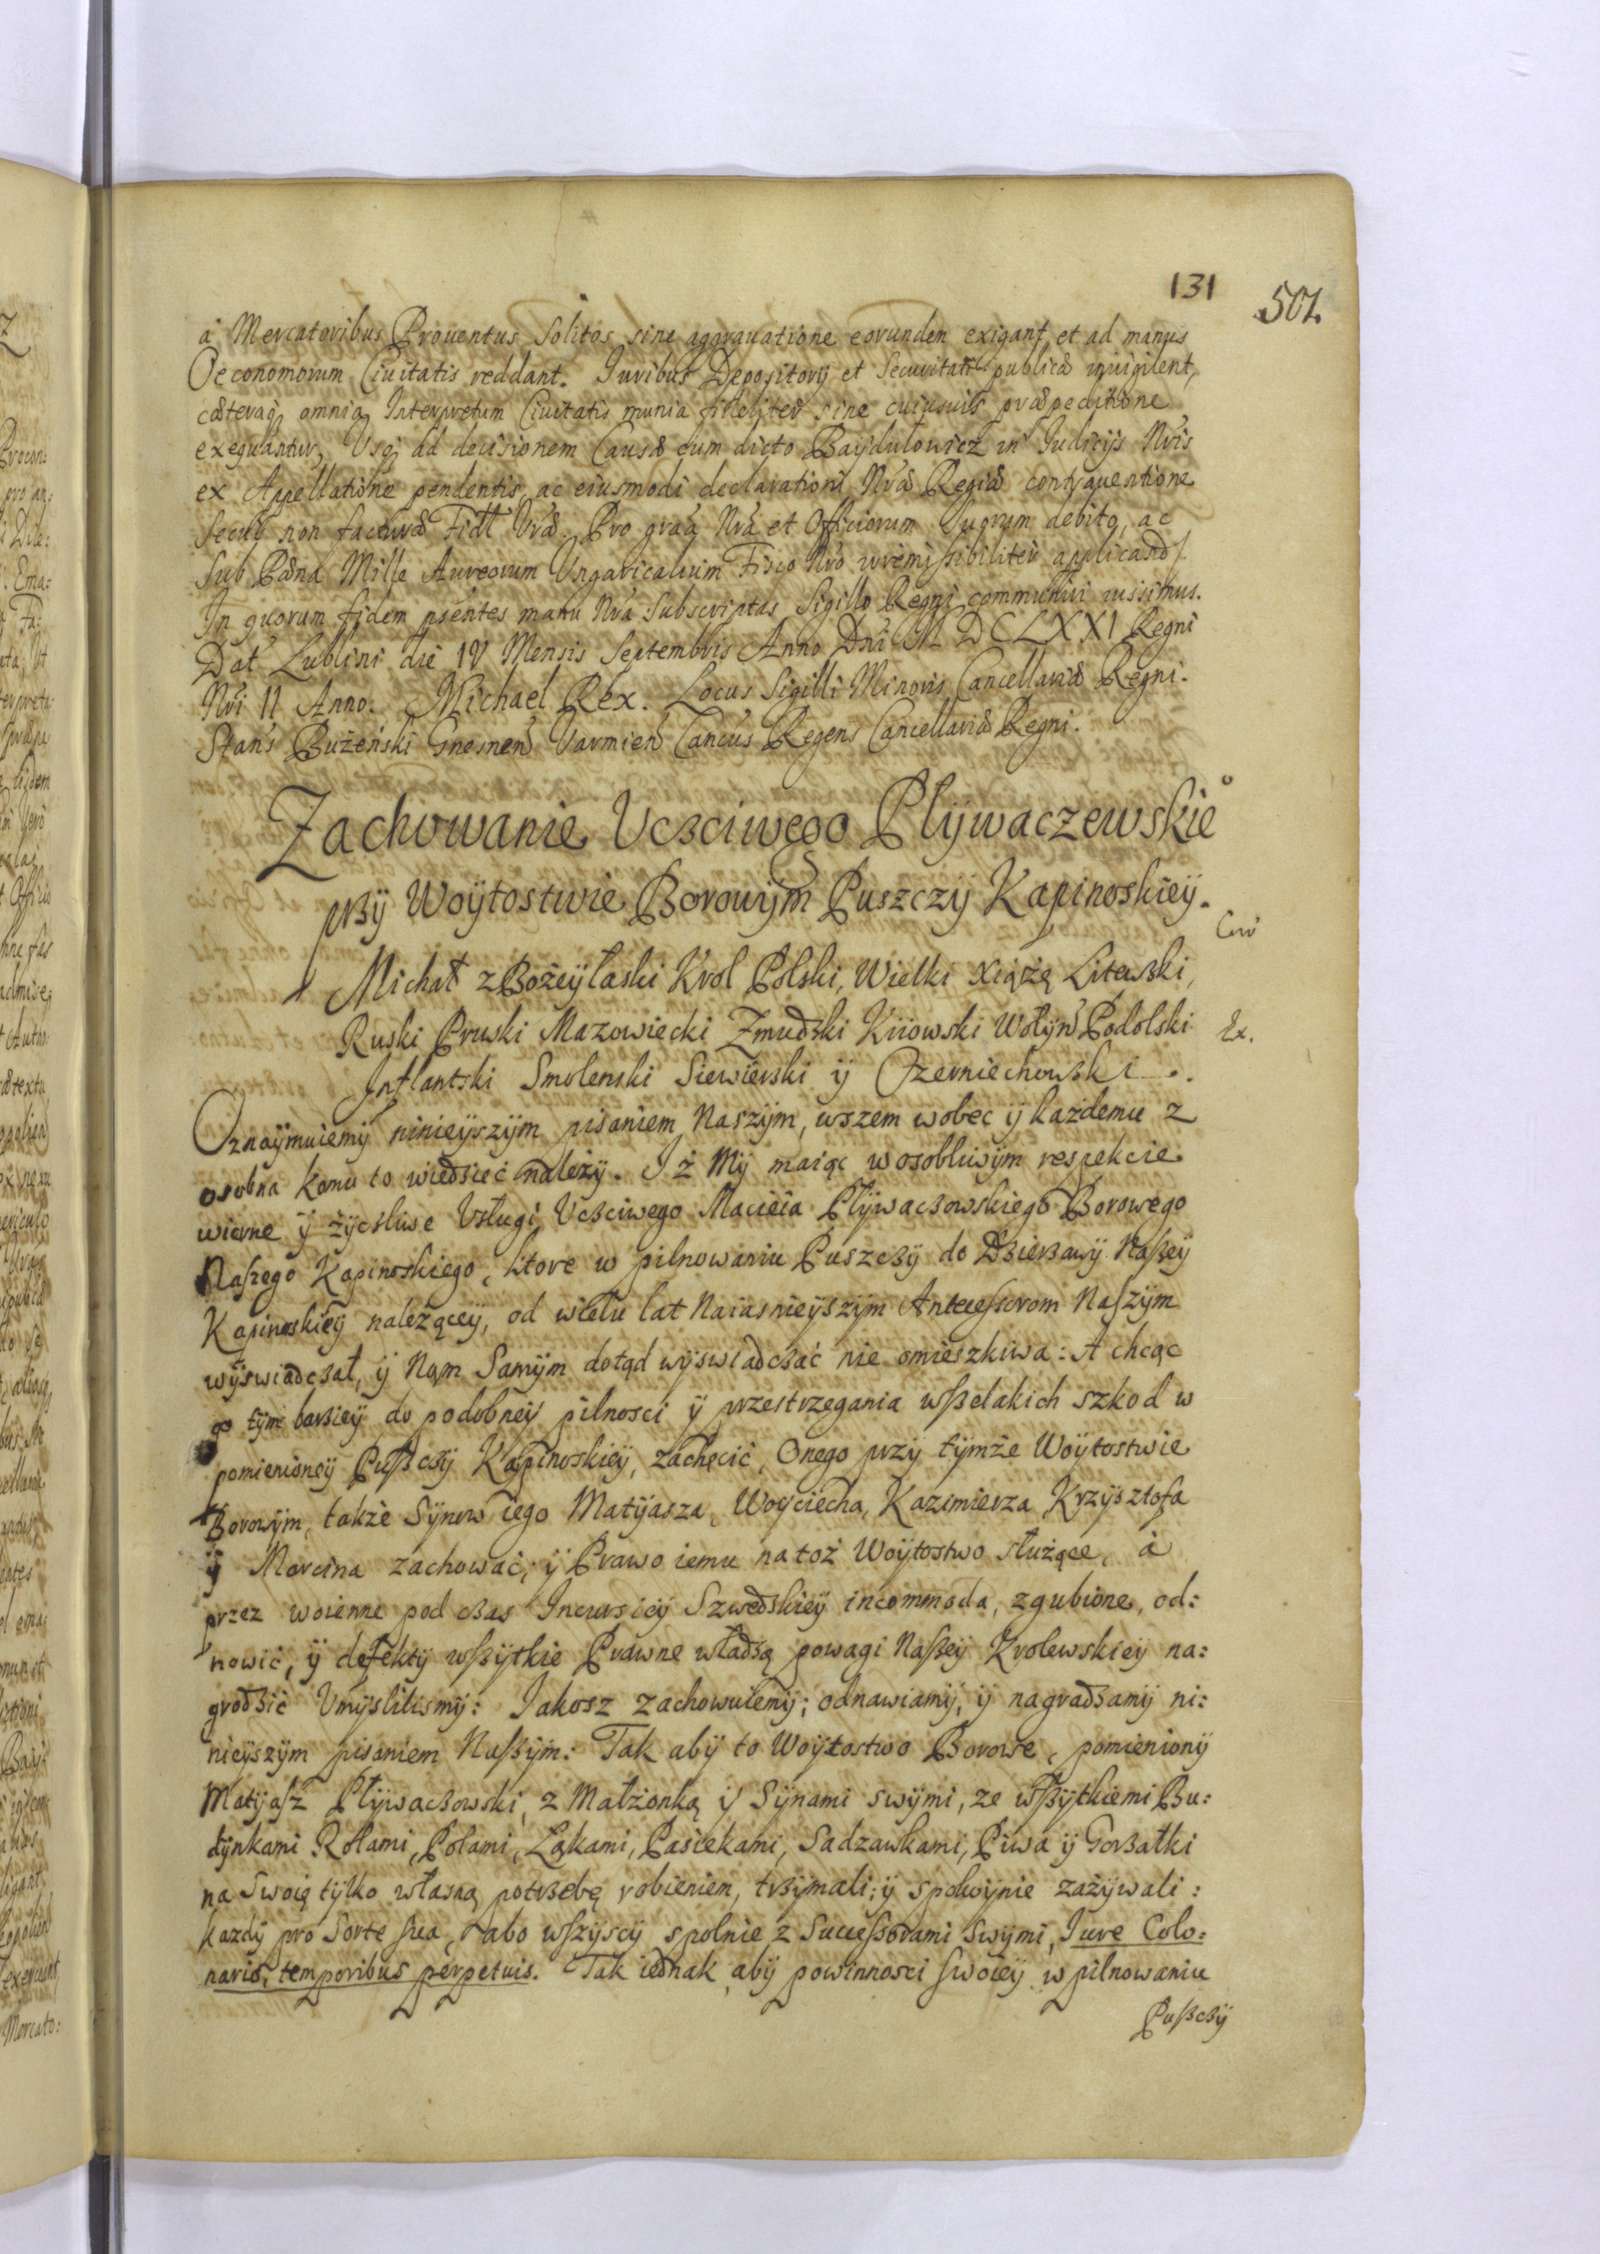 131
501.
à Mercatoribus Prouentus solitos sine aggrauatione eorundem exigant, et ad manus
Oeconomorum Ciuitatis reddant. Iuribus Depositorij et Securitati publicæ inuigilent,
cæteraq; omnia Interpretum Ciuitatis munia fideliter sine cuiusuis præpeditione
exequantur, Usq; ad decisionem Causæ cum dicto Baijdulowicz in Iudicijs Nris
ex Appellatione pendentis, ac eiusmodi declarationi Nræ Regiæ contrauentione
secus non facturæ Fidt Vræ. Pro graâ Nrâ et Officiorum suorum debito, ac
sub Pœnâ Mille Aureorum Ungaricalium Fisco Nro irremissibiliter applicand.
In quorum fidem pñentes manu Nrâ subscriptas Sigillo Regni communiri iussimus.
Dat Lublini die IV Mensis Septembris Anno Dni M DCLXXI Regni
Nri II Anno. Michael Rex. Locus Sigilli Minoris Cancellariæ Regni.
Stan's Bużeński Gnesnen Varmien Cancus Regens Cancellariæ Regni.
Zachowanie Uczciwego Plywaczewskieo
przÿ Woÿtostwie Borowÿm Puszczÿ Kapinoskieÿ.
Michał z Bożeÿ łaski Krol Polski, Wielki Xiążę Litewski,
Ruski Pruski Mazowiecki Zmudzki Kiiowski Wołÿn Podolski
Ex.
Inflantski Smolenski Siewierski ÿ Czerniechowski.
Oznaÿmuiemÿ ninieÿszÿm pisaniem Naszÿm, wszem wobec ÿ każdemu z
osobna komu to wiedzieć należÿ. Iż Mÿ maiąc w osobliwÿm respekcie
wierne ÿ życzliwe Usługi Uczciwego Macieia Płÿwaczowskiego Borowego
Naszego Kapinoskiego, ktore w pilnowaniu Puszczÿ do Dzierżawÿ Naszeÿ
Kapinoskieÿ należąceÿ, od wielu lat Naiasnieÿszÿm Antecessorom Naszÿm
wÿswiadczał, ÿ Nąm Samÿm dotąd wÿswiadczać nie omieszkiwa: A chcąc
go tÿm barzieÿ do podobneÿ pilnosci ÿ przestrzegania wszelakich szkod w
pomienioneÿ Puszczÿ Kapinoskieÿ, zachęcić, Onego przÿ tÿmże Woÿtostwie
Borowÿm, także Sÿnow iego Matÿasza, Woÿciecha, Kazimierza, Krzÿsztofa
ÿ Marcina zachować, ÿ Prawo iemu na toż Woÿtostwo służące, à
przez woienne pod czas Incursieÿ Szwedzkieÿ incommoda, zgubione, od:
nowić, ÿ defektÿ wszÿtkie Prawne władzą powagi Naszeÿ Krolewskieÿ na:
grodzić Umÿslilismÿ: Iakosz zachowuiemÿ; odnawiamÿ; ÿ nagradzamÿ ni:
nieÿszÿm pisaniem Naszÿm: Tak abÿ to Woÿtostwo Borowe, pomienionÿ
Matÿasz Płÿwaczowski, z Małżonką ÿ Sÿnami swÿmi, ze wszÿtkiemi Bu:
dÿnkami Rolami, Polami, Łąkami, Pasiekami, Sadzawkami, Piwa ÿ Gorzałki
na Swoię tÿlko własną potrzebę robieniem, trzÿmali; ÿ spokoÿnie zażÿwali:
kazdÿ pro Sorte sua, abo wszÿscÿ spolnie z Successorami Swÿmi, Iure Colo:
nario, temporibus perpetuis. Tak iednak, abÿ powinnosci swoieÿ w pilnowaniu
Puszczÿ